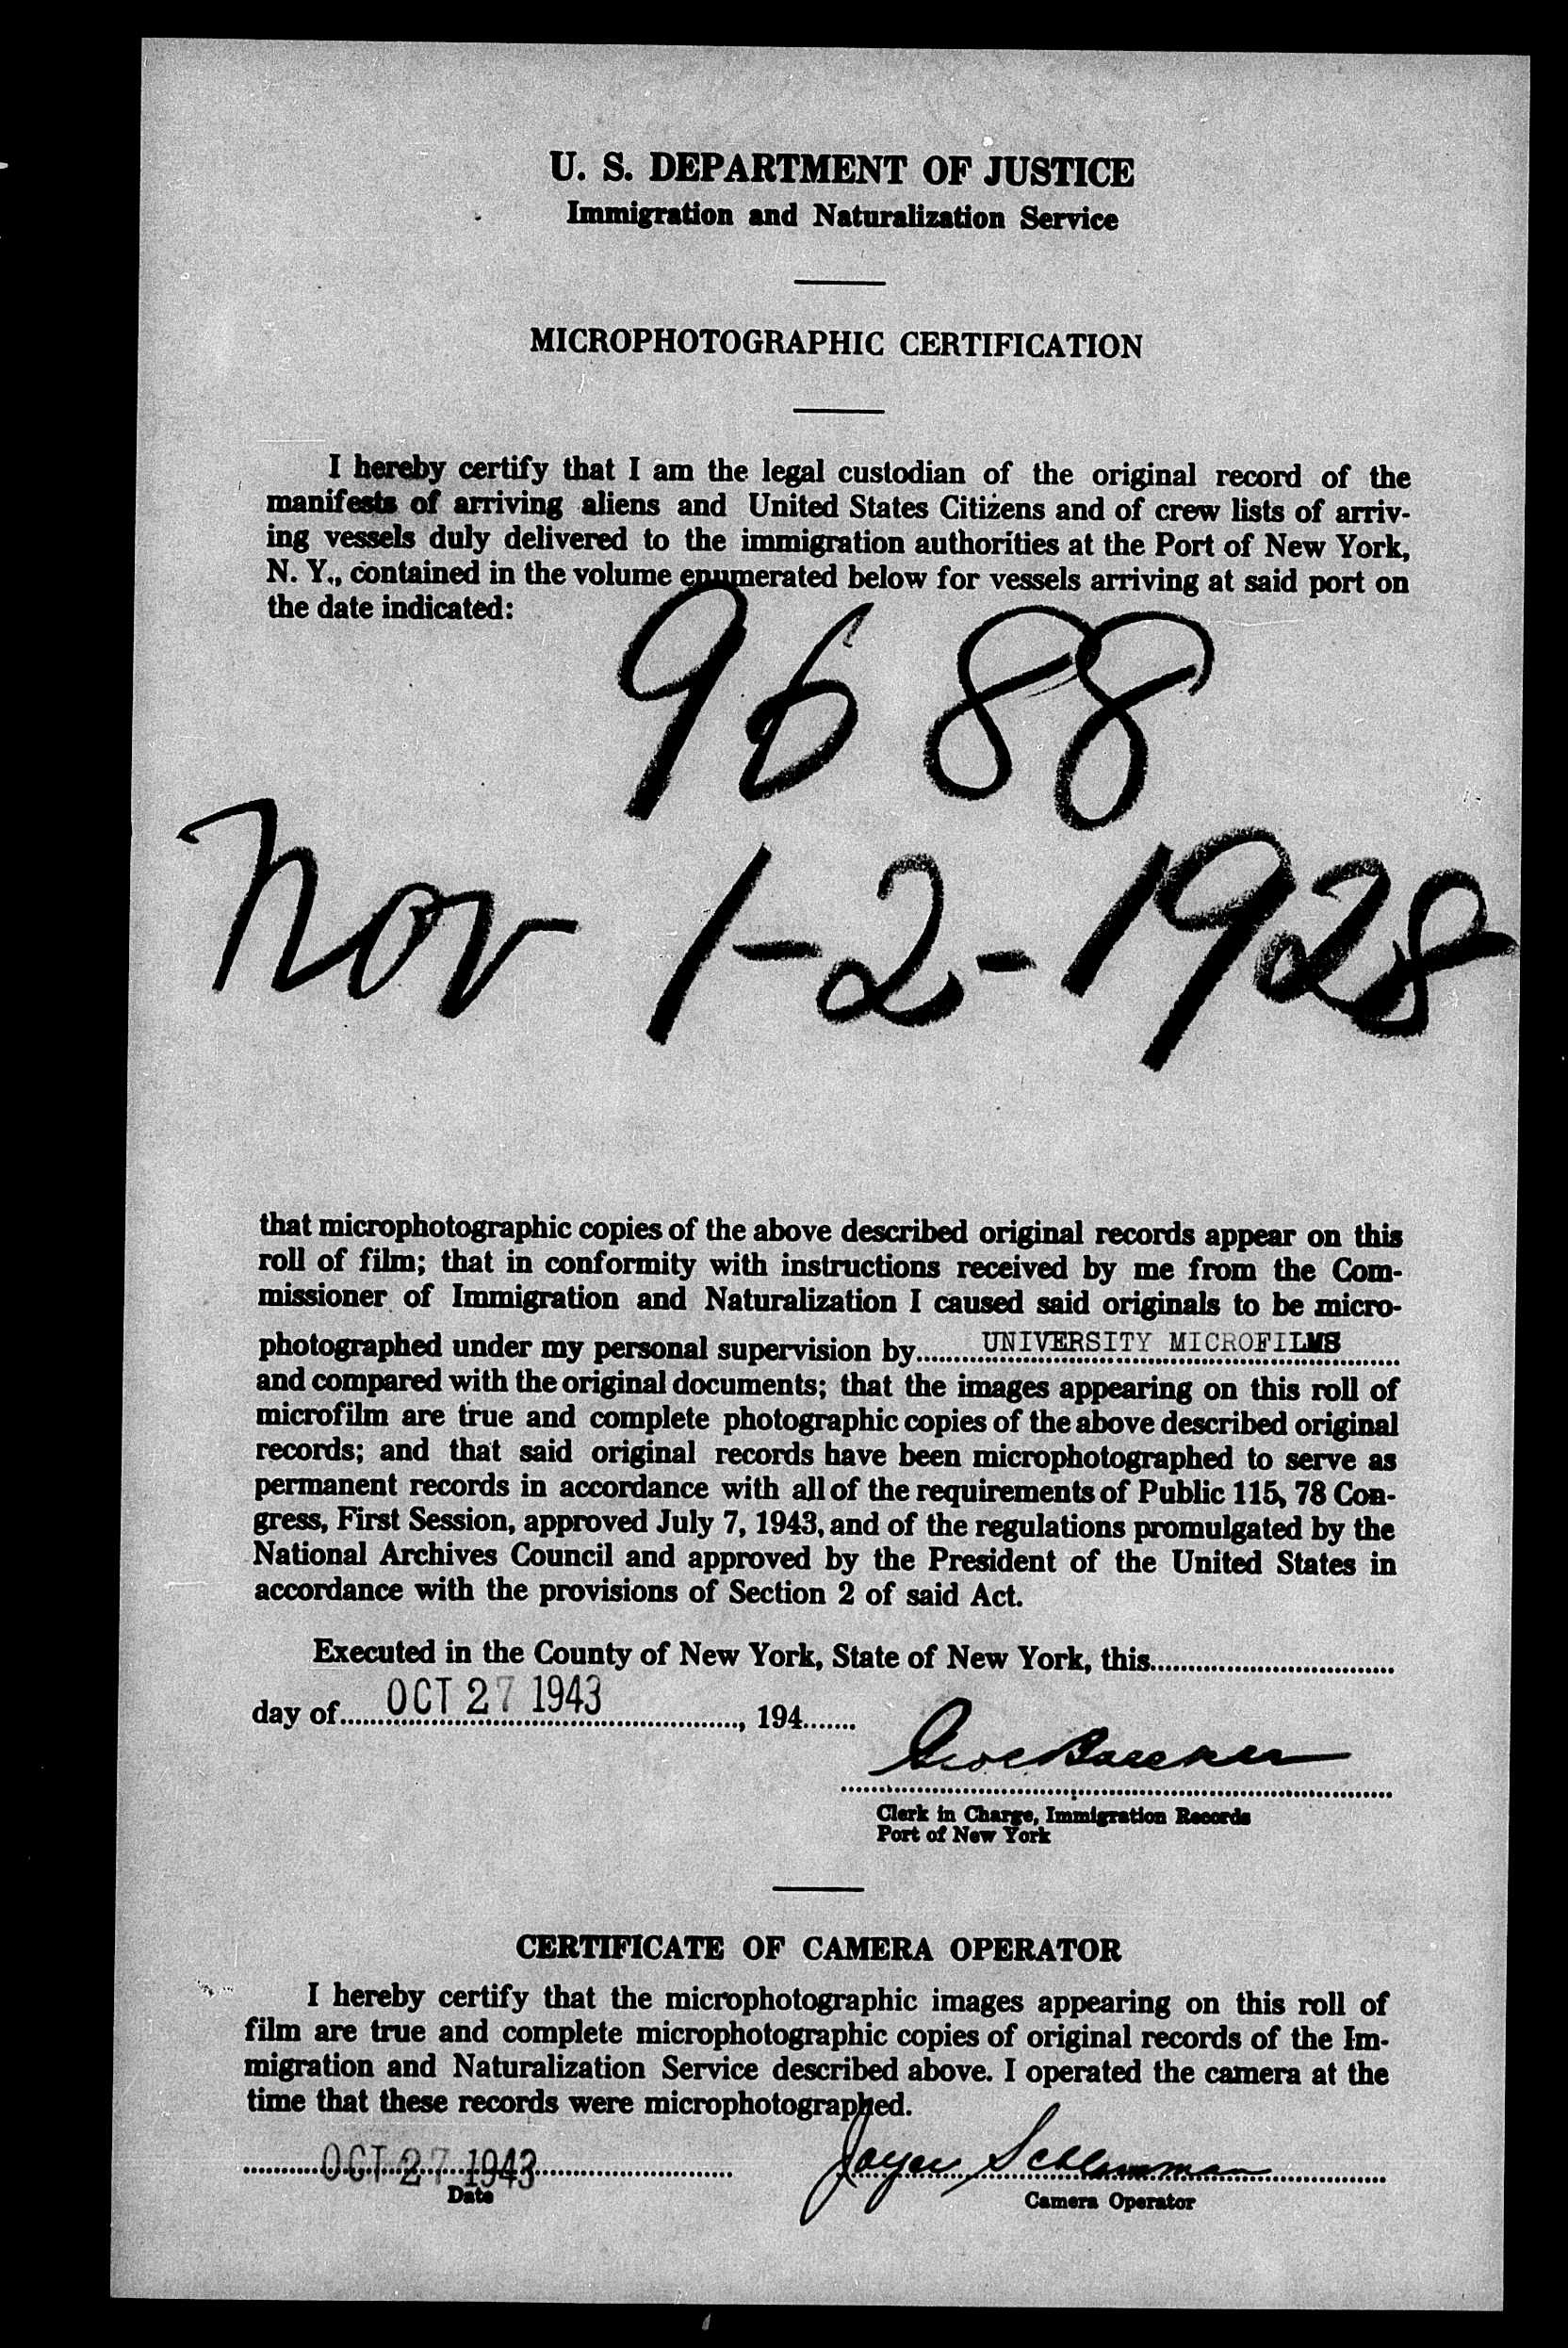 U. S. DEPARTMENT OF JUSTICE
Immigration and Naturalization Service
MICROPHOTOGRAPHIC CERTIFICATION
I hereby certify that I am the legal custodian of the original record of the
manifests of arriving aliens and United States Citizens and of crew lists of arriv-
ing vessels duly delivered to the immigration authorities at the Port of New York,
N. Y., contained in the volume enumerated below for vessels arriving at said port on
the date indicated:
9688
Nov 1-2-1928
that microphotographic copies of the above described original records appear on this
roll of film; that in conformity with instructions received by me from the Com-
missioner of Immigration and Naturalization I caused said originals to be micro-
photographed under my personal supervision by UNIVERSITY MICROFILMS
and compared with the original documents; that the images appearing on this roll of
microfilm are true and complete photographic copies of the above described original
records; and that said original records have been microphotographed to serve as
permanent records in accordance with all of the requirements of Public 115, 78 Con-
gress, First Session, approved July 7, 1943, and of the regulations promulgated by the
National Archives Council and approved by the President of the United States in
accordance with the provisions of Section 2 of said Act.
Executed in the County of New York, State of New York, this
day of OCT 27 1943, 194
Clerk in Charge, Immigration Records
Port of New York
CERTIFICATE OF CAMERA OPERATOR
I hereby certify that the microphotographic images appearing on this roll of
film are true and complete microphotographic copies of original records of the Im-
migration and Naturalization Service described above. I operated the camera at the
time that these records were microphotographed.
OCT 27 1943
Date
Camera Operator